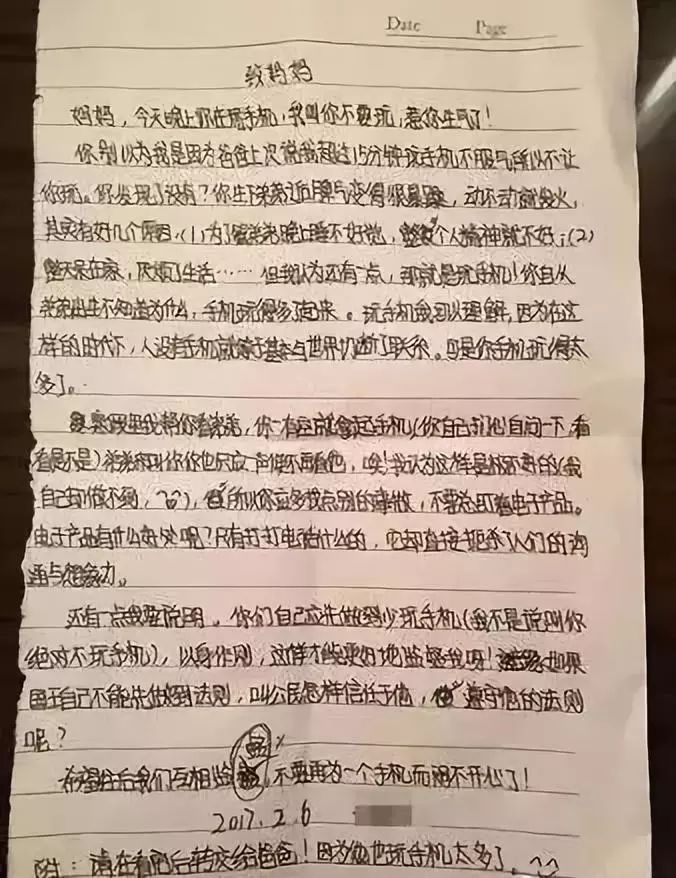 Date Page
致妈妈
妈妈，今天晚上你在玩手机，我叫你不要玩，惹你生气了！
你别以为我是因为爸爸上次说我超过15分钟玩手机不服气所以不让
你玩。你发现了没有？你生下弟弟后脾气变得很暴躁，动不动就发火，
其实有好几个原因：(1)为了喂弟弟晚上睡不好觉，整个人精神就不好；(2)
整天呆在家，厌烦了生活……但我认为还有一点，那就是玩手机！你自从
弟弟出生不知道为什么，手机玩得多了起来。玩手机我可以理解，因为在这
样的时代下，人没有手机就等于基本与世界切断了联系。可是你手机玩得太
多了。
我帮你看弟弟，你一有空就拿起手机(你自己扪心自问一下，看
看是不是)弟弟来叫你你也只应一声便不再看他，唉！我认为这样是极不好的(我
自己却做不到，)，所以你应多找点别的事做，不要总盯着电子产品。
电子产品有什么好处呢？只有打打电话什么的，它却直接扼杀了人们的沟
通与想象力。
还有一点我要说明，你们自己应先做到少玩手机(我不是说叫你
绝对不玩手机)，以身作则，这样才能更好地监督我呀！如果
国王自己不能先做到法则，叫公民怎样信任于他，遵守他的法则
呢？
希望往后我们互相监督，不要再为一个手机而闹不开心了！
2017.2.6
附：请在看完后转交给爸爸！因为他也玩手机太多了。^^